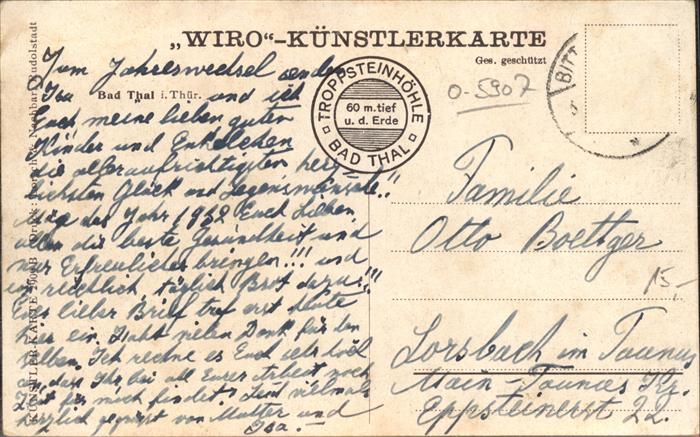 „WIRO“-KÜNSTLERKARTE
Ges. geschützt
Bad Thal i. Thür.
TROPFSTEINHÖHLE
60 m. tief
u. d. Erde
BAD THAL
BITT
0-5907
Zum Jahreswechsel senden
Isa und ich
Euch meine lieben guten
Kinder und Enkelchen
die alleraufrichtigsten herz-
lichsten Glück und Segenswünsche!!
das Jahr 1952 Euch Lieben
allen die beste Gesundheit und
nur Erfreuliches bringen!!! und
ein reichlich täglich Brot dazu!!!
Euer lieber Brief traf erst heute
hier ein. Habt vielen Dank für den
selben. Ich rechne es Euch sehr hoch
an, dass Ihr bei all Eurer Arbeit noch
Zeit für mich findet. Seid vielmals
herzlich gegrüsst von Mutter und
Isa.
Familie
Otto Boettger
15,-
Lorsbach im Taunus
Main-Taunus Kr.
Eppsteinerst 22.
KÜNSTLER KARTE
Nachbar, Rudolstadt